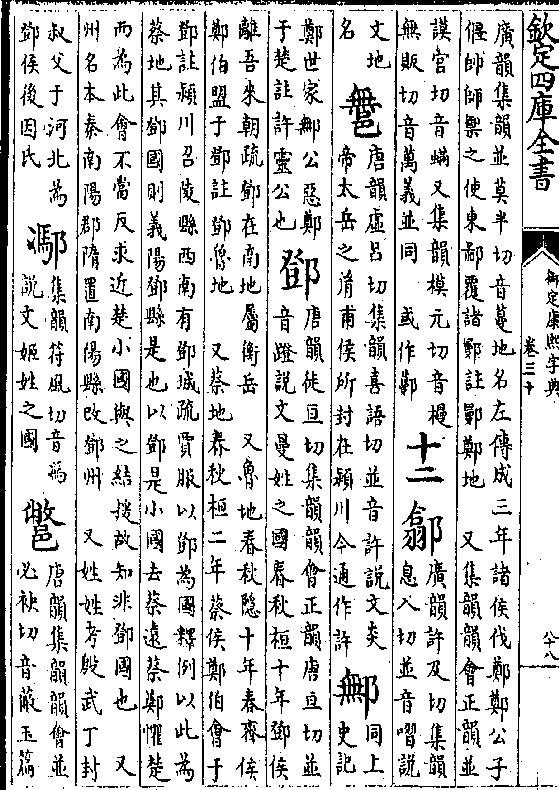 欽定四庫全書
御定康熙字典
卷三十
廣韻集韻並莫半切音蔓地名左傳成三年諸侯伐鄭鄭公子
偃帥師禦之使東鄙覆諸鄤註鄤鄭地 又集韻韻會正韻並
謨官切音瞞又集韻模元切音樠
無販切音萬義並同 或作鄸
十二
廣韻許及切集韻
息入切並音噏說
文地
名
唐韻虛呂切集韻喜語切並音許說文炎
帝太岳之胤甫侯所封在潁川今通作許
鄦
同上
史記
鄭世家鄦公惡鄭
于楚註許靈公也
鄧
唐韻徒亘切集韻韻會正韻唐亘切並
音蹬說文曼姓之國春秋桓十年鄧侯
離吾來朝疏鄧在南地屬衡岳 又魯地春秋隱十年春齊侯
鄭伯盟于鄧註鄧魯地 又蔡地春秋桓二年蔡侯鄭伯會于
鄧註潁川召陵縣西南有鄧城疏賈服以鄧為國釋例以此為
蔡地其鄧國則義陽鄧縣是也以鄧是小國去蔡遠蔡鄭懼楚
而為此會不當反求近楚小國與之結援故知非鄧國也 又
州名本秦南陽郡隋置南陽縣改鄧州 又姓姓考殷武丁封
叔父于河北為
鄧侯後因氏
集韻符風切音馮
說文姬姓之國
唐韻集韻韻會並
必袂切音蔽玉篇